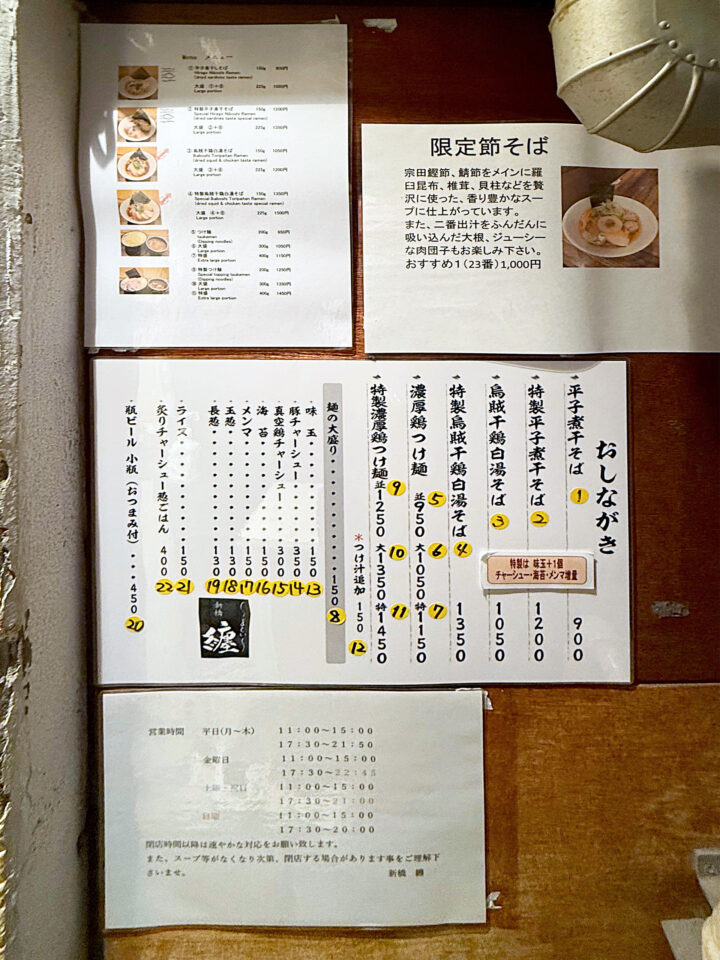 Menu メニュー
① 平子煮干しそば 150g 900円
Hirago Niboshi Ramen
(dried sardines taste ramen)
大盛 ①+⑧ 225g 1050円
Large portion
② 特製平子煮干そば 150g 1200円
Special Hirago Niboshi Ramen
(dried sardines taste special ramen)
大盛 ②+⑧ 225g 1350円
Large portion
③ 烏賊干鶏白湯そば 150g 1050円
Ikaboshi Toripaitan Ramen
(dried squid & chicken taste ramen)
大盛 ③+⑧ 225g 1200円
Large portion
④ 特製烏賊干鶏白湯そば 150g 1350円
Special Ikaboshi Toripaitan Ramen
(dried squid & chicken taste special ramen)
大盛 ④+⑧ 225g 1500円
Large portion
⑤ つけ麺 200g 950円
tsukemen
(Dipping noodles)
⑥ 大盛 300g 1050円
Large portion
⑦ 特盛 400g 1150円
Extra large portion
⑨ 特製つけ麺 200g 1250円
Special topping tsukemen
(Dipping noodles)
⑩ 大盛 300g 1350円
Large portion
⑪ 特盛 400g 1450円
Extra large portion
限定節そば
宗田鰹節、鯖節をメインに羅
臼昆布、椎茸、貝柱などを贅
沢に使った、香り豊かなスー
プに仕上がっています。
また、二番出汁をふんだんに
吸い込んだ大根、ジューシー
な肉団子もお楽しみ下さい。
おすすめ1(23番)1,000円
おしながき
平子煮干そば 1 900
特製平子煮干そば 2 1200
烏賊干鶏白湯そば 3 1050
特製烏賊干鶏白湯そば 4 1350
特製は 味玉+1個
チャーシュー・海苔・メンマ増量
濃厚鶏つけ麺 5 並950 6 大1050 7 特1150
特製濃厚鶏つけ麺 9 並1250 10 大1350 11 特1450
※つけ汁追加 150 12
麺の大盛り・・・・・・・・・・150 8
味玉・・・・・・・150 13
豚チャーシュー・・・・350 14
真空鶏チャーシュー 300 15
海苔・・・・・・・150 16
メンマ・・・・・・150 17
玉葱・・・・・・・130 18
長葱・・・・・・・130 19
ライス・・・・・・・・150 21
炙りチャーシュー葱ごはん 400 22
瓶ビール 小瓶(おつまみ付)・・・450 20
新橋
纏
営業時間 平日(月~木) 11:00~15:00
17:30~21:50
金曜日 11:00~15:00
17:30~22:45
土曜・祝日 11:00~15:00
17:30~21:00
日曜 11:00~15:00
17:30~20:00
閉店時間以降は速やかな対応をお願い致します。
また、スープ等がなくなり次第、閉店する場合があります事をご理解下
さいませ。 新橋 纏